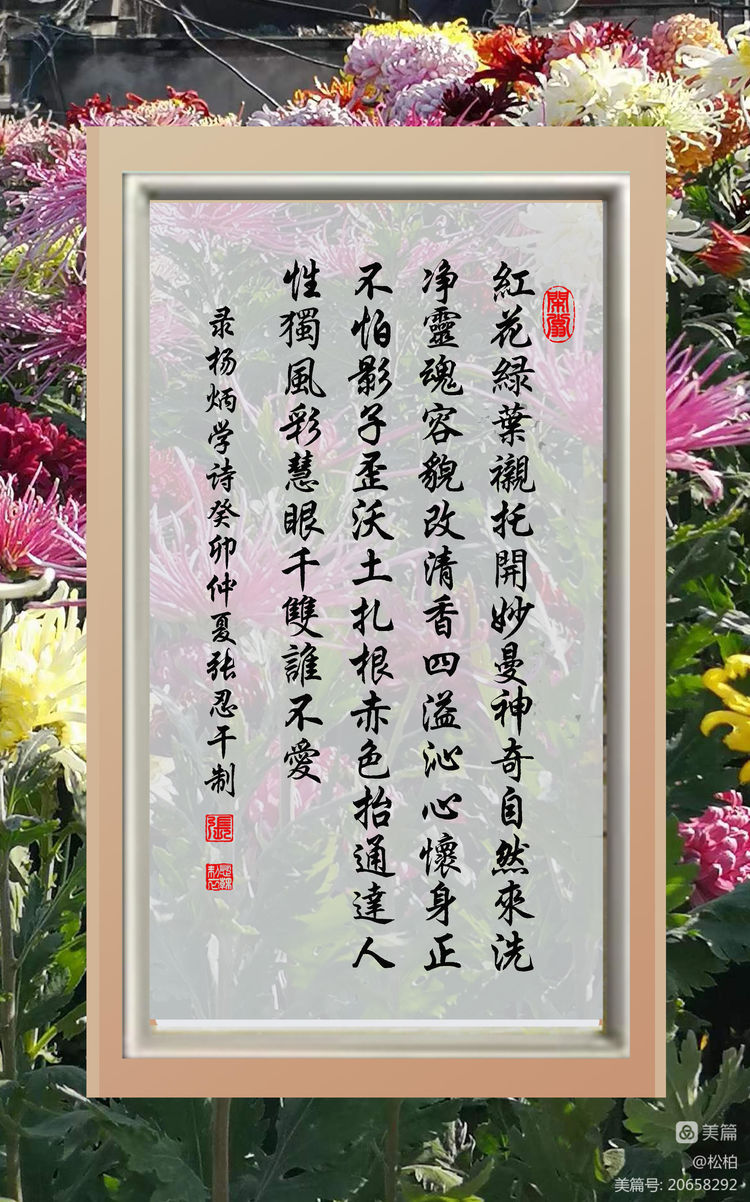 紅花綠葉襯托開妙曼神奇自然來洗
净靈魂容貌改清香四溢沁心懷身正
不怕影子歪沃土扎根赤色抬通達人
性獨風彩慧眼千雙誰不愛
录杨炳学诗癸卯仲夏张忍干制
張
美篇
@松柏
美篇号: 20658292